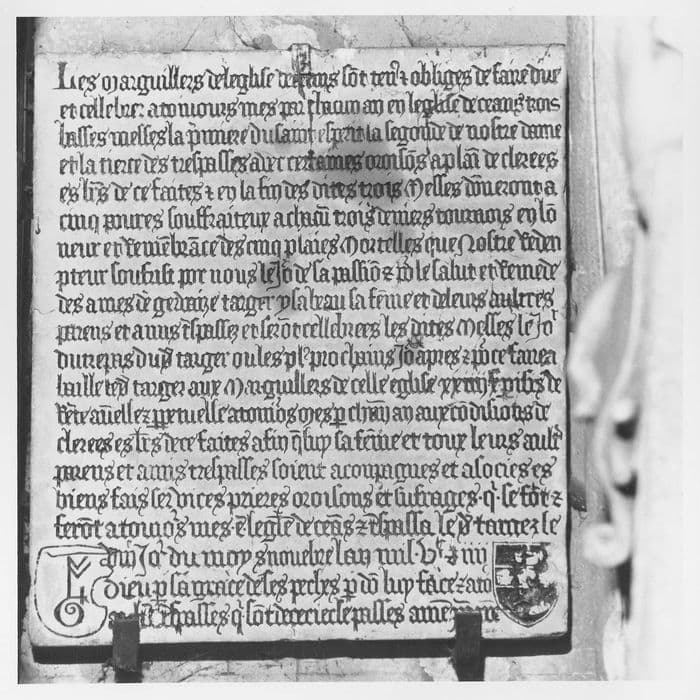 Les marguilliers de leglise de ceans sōt ten⁹ ⁊ obliges de faire dire
et cellebrer a tousiours mes par chacun an en leglise de ceans trois
basses messes la p̄miere du saint esprit la segonde de nostre dame
et la tierce des trespasses avec certaines oroisōs a plaī declerees
es lr̄s de ce faites ⁊ en la fin des dites trois Messes dōneront a
cinq poures souffraiteux a chacū trois deniers tournois en lō
neur et Remēbrāce des cinq plaies Mortelles que Nostre Redem
pteur souffrist por nous le Jo⁹ de sa passiō ⁊ po⁹ le salut et Remede
des ames de targer sa fēme et de leurs aultres
parens et amis t̄spassez et serōt cellebrees les dites Messes le Jo⁹
du trepas dud̄ targer ou les pl⁹ prochains Jo⁹s apres ⁊ po⁹ ce faire a
baille led̄ targer aux Marguilliers de celle eglise
Rēte anuelle ⁊ p̄petuelle a tousio⁹s mes p̄ chūn an aux cōdisions
declerees es lr̄s de ce faites afin q̄ luy sa fēme et toux leurs aultr̄
parens et amis trespasses soient acōpaignes et asocies es
biens fais services prieres oroisons et sufrages q̄ se fōt ⁊
ferōt a tousio⁹s mes ē leglise de ceās ⁊ t̄spassa le
Jo⁹ du moys de novēbre lan mil vᶜ ⁊ iiii
dieu p̄ sa grace de ses peches p̄dō luy face ⁊ a to⁹
aultr̄s t̄spasses q̄ sōt de ce ciecle passes amē